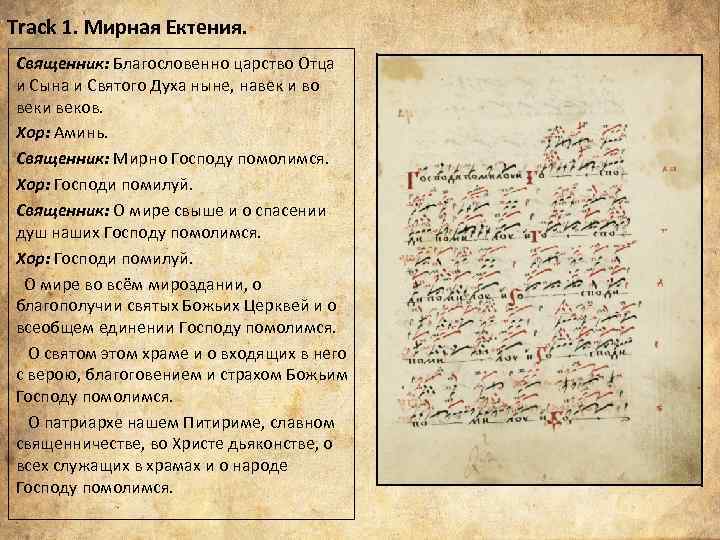 Track 1. Мирная Ектения.
Священник: Благословенно царство Отца
и Сына и Святого Духа ныне, навек и во
веки веков.
Хор: Аминь.
Священник: Мирно Господу помолимся.
Хор: Господи помилуй.
Священник: О мире свыше и о спасении
душ наших Господу помолимся.
Хор: Господи помилуй.
О мире во всём мироздании, о
благополучии святых Божьих Церквей и о
всеобщем единении Господу помолимся.
О святом этом храме и о входящих в него
с верою, благоговением и страхом Божьим
Господу помолимся.
О патриархе нашем Питириме, славном
священничестве, во Христе дьяконстве, о
всех служащих в храмах и о народе
Господу помолимся.